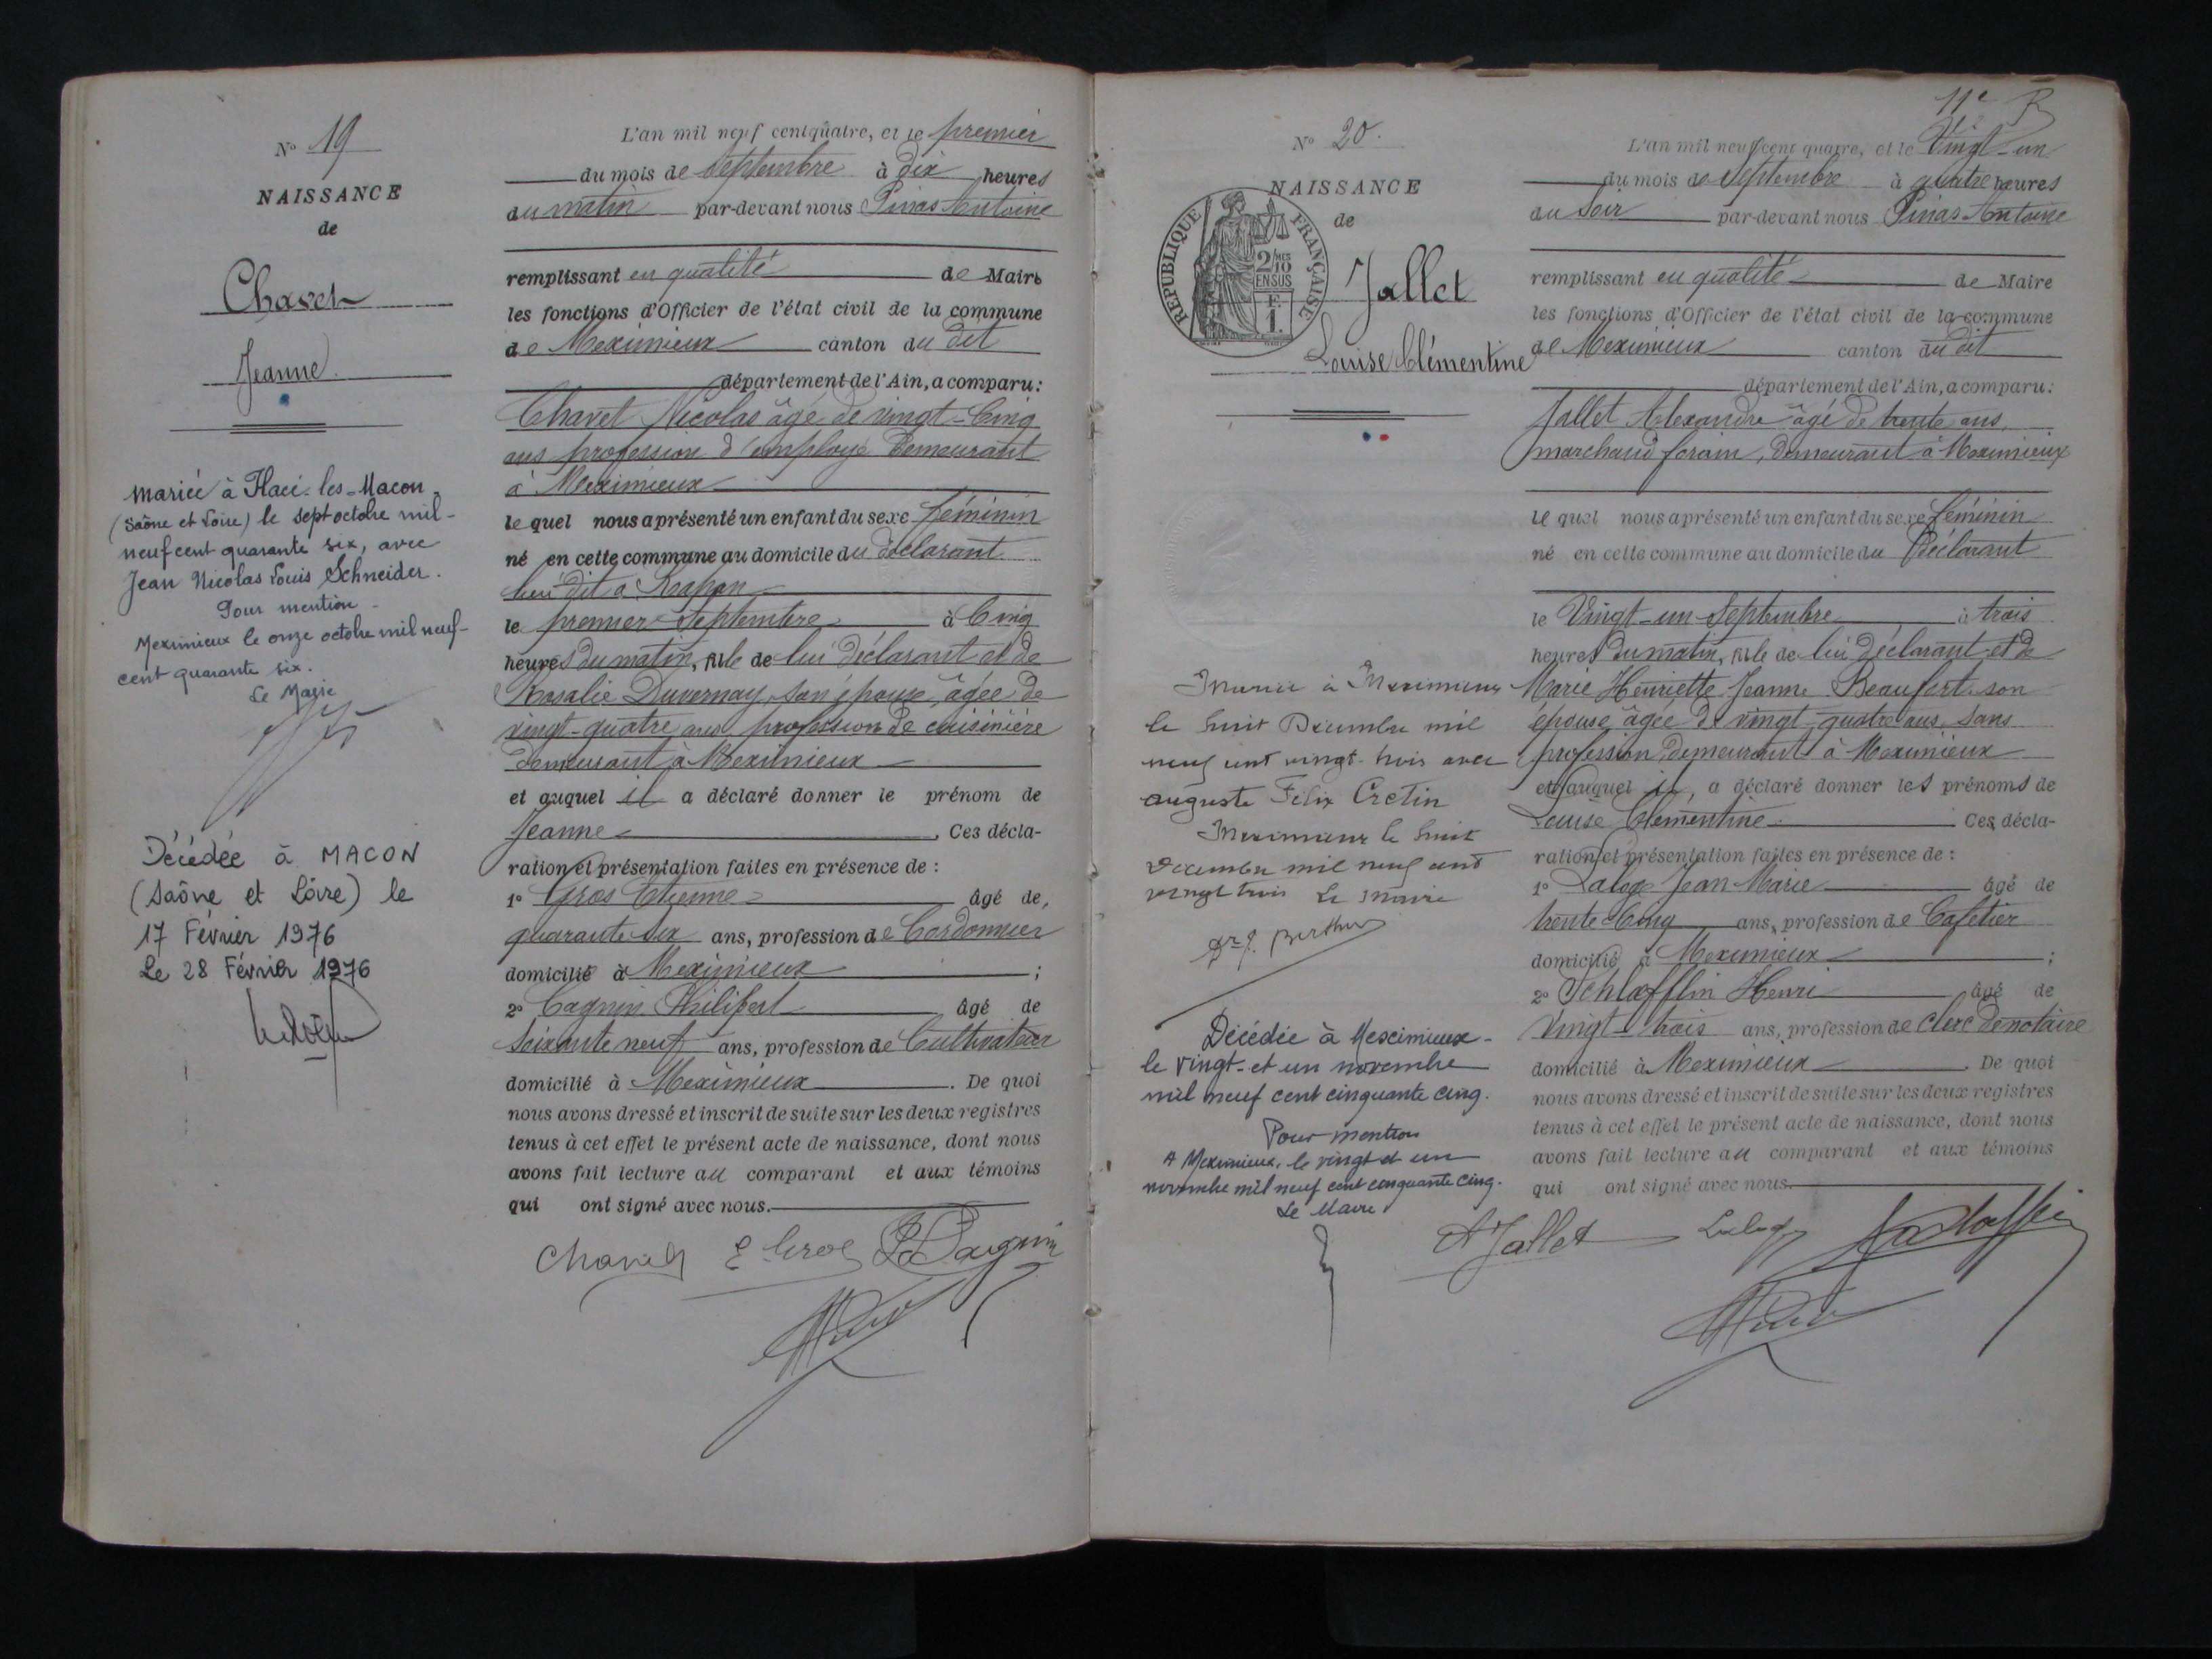 Nº 19
NAISSANCE
de
Chavet
Jeanne
mariée à Flacé-les-Macon
(Saône et Loire) le sept octobre mil-
neuf cent quarante six, avec
Jean Nicolas Louis Schneider.
Pour mention
Meximieux le onze octobre mil neuf-
cent quarante six.
Le Maire
Décédée à MACON
(Saône et Loire) le
17 Février 1976
Le 28 Février 1976
L'an mil neuf cent quatre, et le premier
du mois de Septembre à dix heures
du matin par-devant nous Pinas Antoine
remplissant en qualité de Maire
les fonctions d'Officier de l'état civil de la commune
de Meximieux canton du dit
département de l'Ain, a comparu:
Chavet Nicolas âgé de vingt-Cinq
ans profession d'employé demeurant
à Meximieux
le quel nous a présenté un enfant du sexe féminin
né en cette commune au domicile du déclarant
lieu dit à
le premier Septembre à Cinq
heures du matin, fille de lui déclarant et de
Rosalie Duvernay, son épouse, âgée de
vingt-quatre ans profession de cuisinière
demeurant à Meximieux
et auquel il a déclaré donner le prénom de
Jeanne. Ces décla-
ration et présentation faites en présence de :
1º Gros Etienne âgé de,
quarante six ans, profession de Cordonnier
domicilié à Meximieux ;
2º Cagnin Philibert âgé de
Soixante neuf ans, profession de Cultivateur
domicilié à Meximieux. De quoi
nous avons dressé et inscrit de suite sur les deux registres
tenus à cet effet le présent acte de naissance, dont nous
avons fait lecture au comparant et aux témoins
qui ont signé avec nous.
Chavet E Gros
11e R
Nº 20.
NAISSANCE
de
REPUBLIQUE FRANÇAISE
2/10 MES
EN SUS
F.
1.
Jallet
Louise Clémentine
Mariée à Meximieux
le huit Décembre mil
neuf cent vingt-trois avec
Auguste Félix Cretin
Meximieux le huit
Décembre mil neuf cent
vingt trois Le Maire
Décédée à Mescimieux-
le vingt-et un novembre
mil neuf cent cinquante cinq.
Pour mention
A Meximieux, le vingt et un
novembre mil neuf cent cinquante cinq.
Le Maire
L'an mil neuf cent quatre, et le Vingt-un
du mois de Septembre à quatre heures
du Soir par-devant nous Pinas Antoine
remplissant en qualité de Maire
les fonctions d'Officier de l'état civil de la commune
de Meximieux canton du dit
département de l'Ain, a comparu:
Jallet Alexandre âgé de trente ans,
marchand forain, demeurant à Meximieux
le quel nous a présenté un enfant du sexe féminin
né en cette commune au domicile du déclarant
le Vingt-un Septembre à trois
heures du matin, fille de lui déclarant et de
Marie Henriette Jeanne Beaufort son
épouse, âgée de vingt-quatre ans, sans
profession, demeurant à Meximieux
et auquel il, a déclaré donner les prénoms de
Louise Clémentine. Ces décla-
ration et présentation faites en présence de :
1º Jean Marie âgé de
trente Cinq ans, profession de Cafetier
domicilié à Meximieux ;
2º Schlafflin Henri âgé de
Vingt-trois ans, profession de Clerc de notaire
domicilié à Meximieux. De quoi
nous avons dressé et inscrit de suite sur les deux registres
tenus à cet effet le présent acte de naissance, dont nous
avons fait lecture au comparant et aux témoins
qui ont signé avec nous.
A Jallet